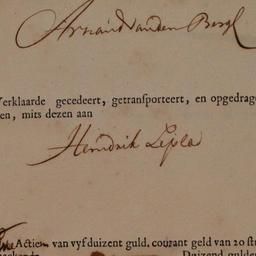 Arnaud vanden Bergh
Verklaarde gecedeert, getransporteert, en opgedrage
en, mits dezen aan
Hendrik
Actien van vyf duizent guld. courant geld van 20 stu
Duizend gulde